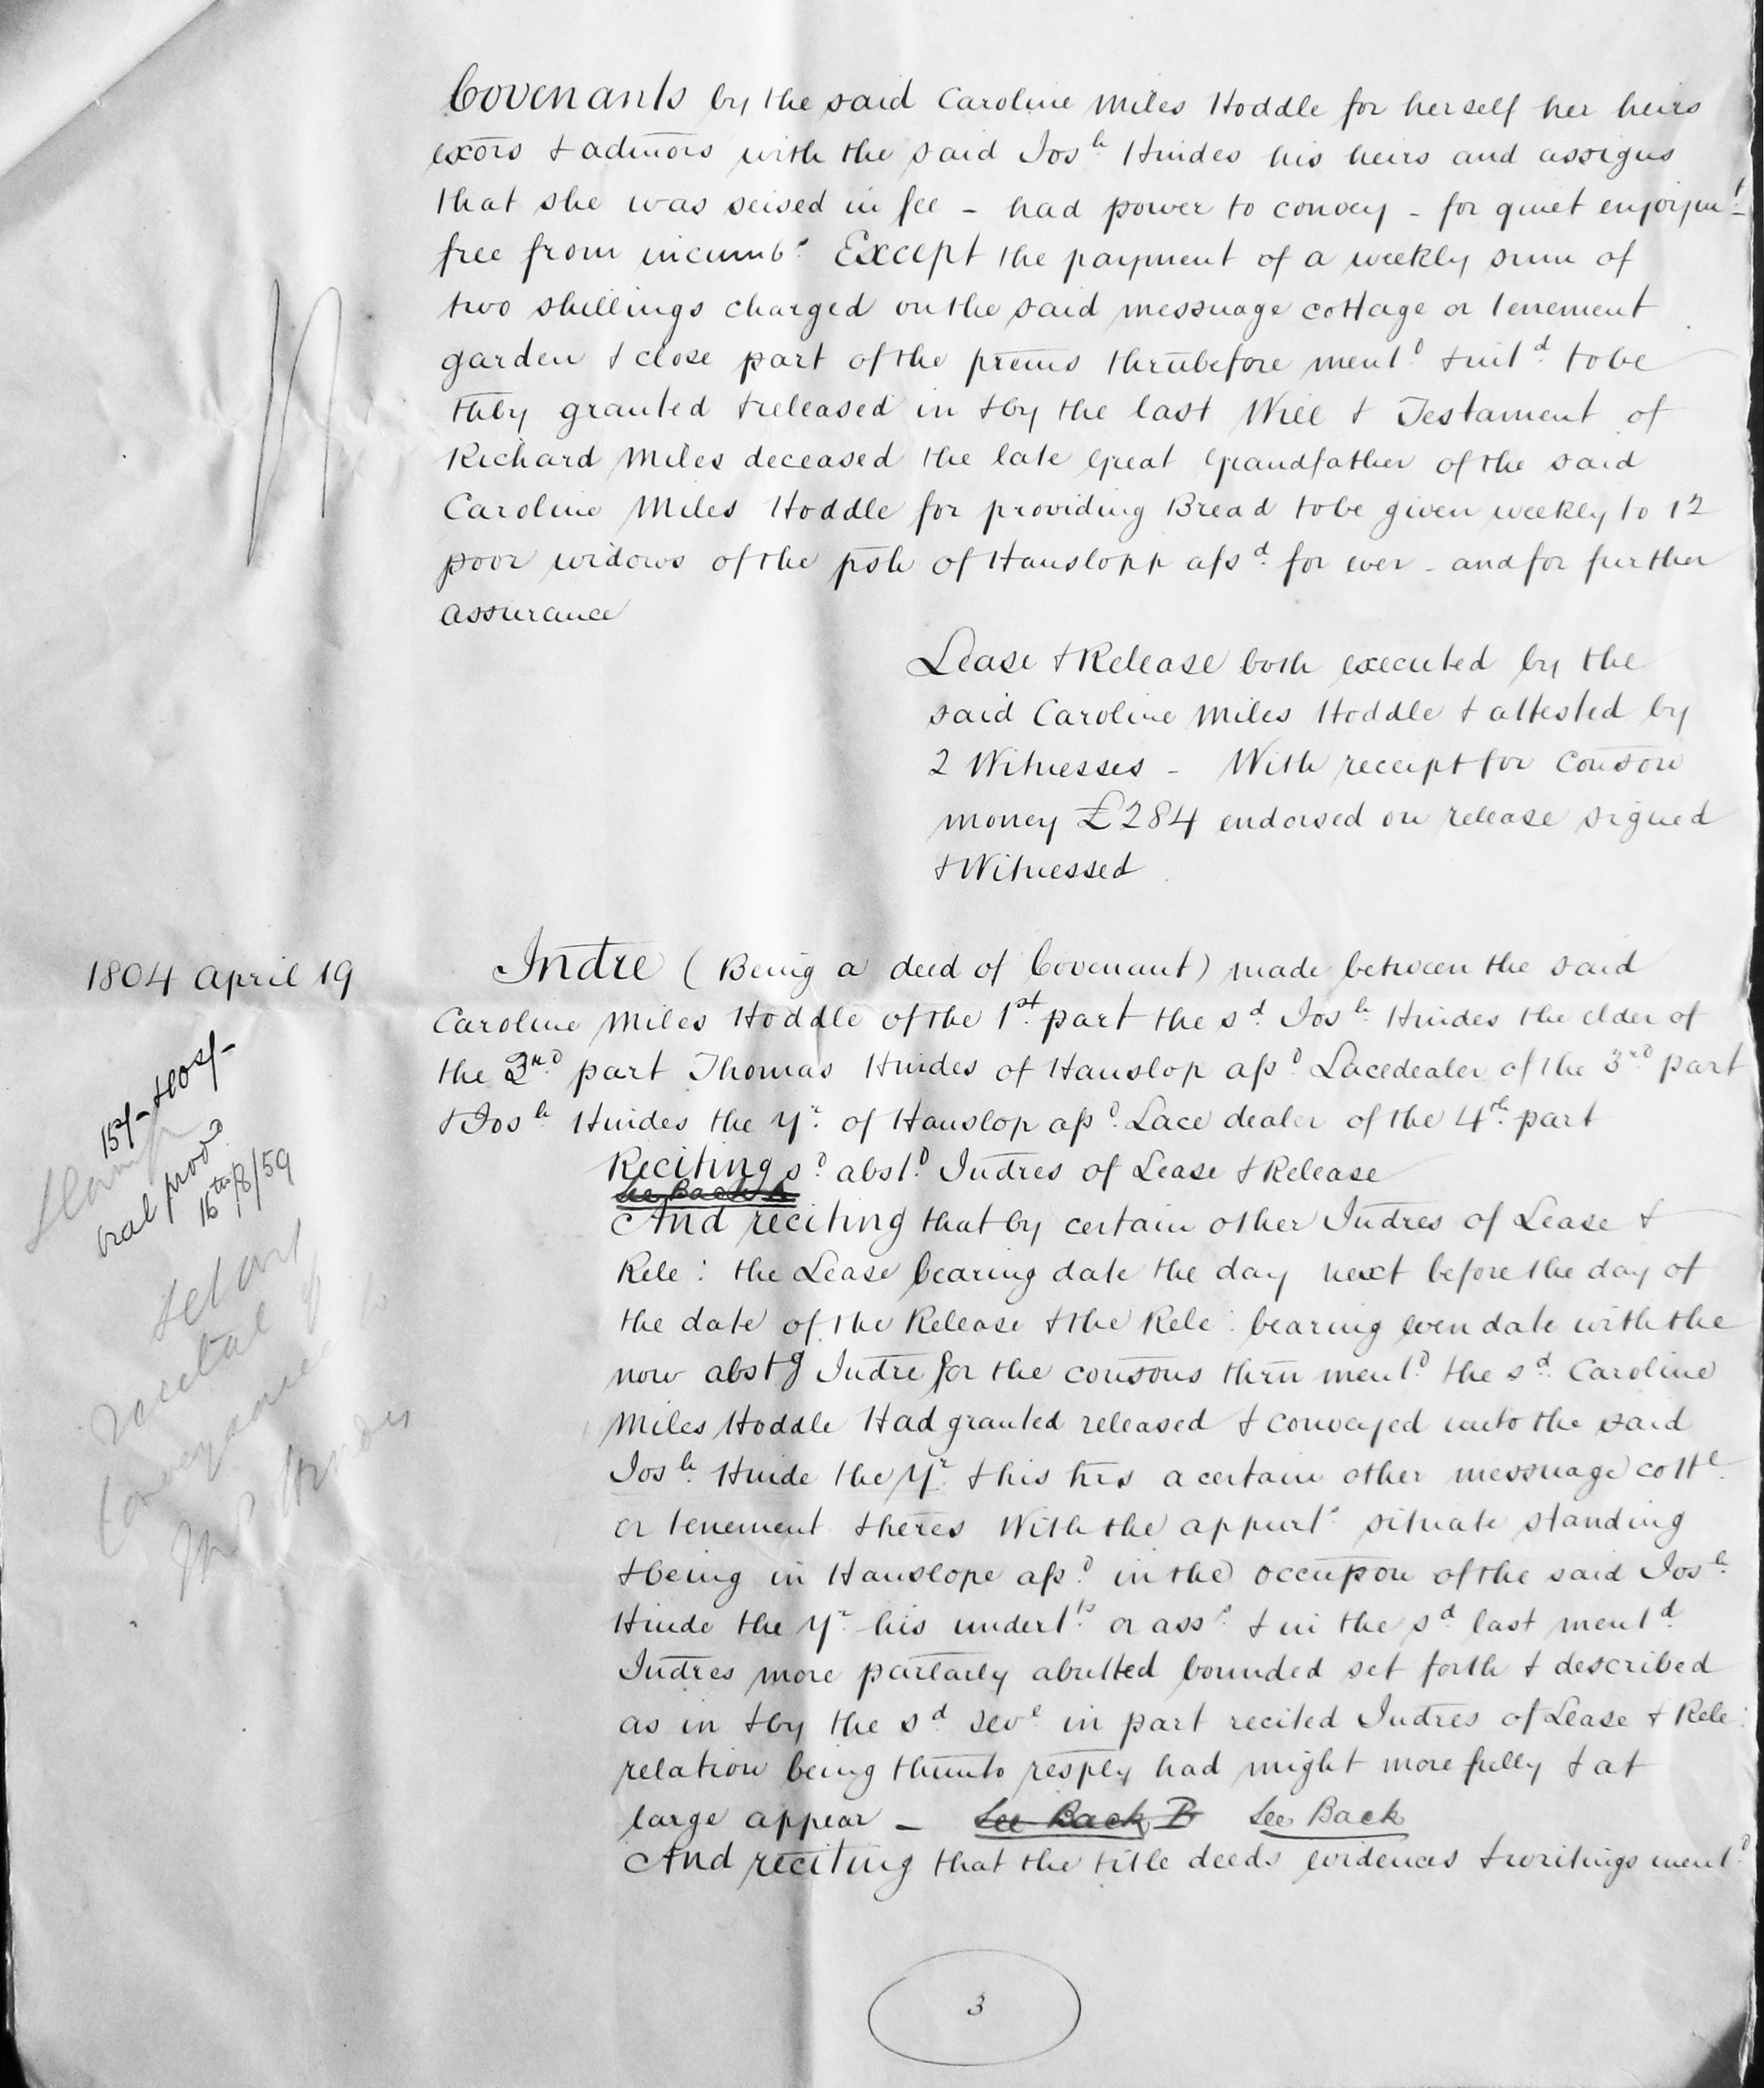 Covenants by the said Caroline Miles Hoddle for herself her heirs
exors & admors with the said Josh Hindes his heirs and assigns
that she was seised in fee - had power to convey - for quiet enjoymt -
free from incumbs Except the payment of a weekly sum of
two shillings charged on the said messuage cottage or tenement
garden & close part of the prems thrinbefore mentd & intd to be
thby granted & released in & by the last Will & Testament of
Richard Miles deceased the late Great Grandfather of the said
Caroline Miles Hoddle for providing Bread to be given weekly to 12
poor widows of the psh of Hanslopp afsd for ever - and for further
assurance
Lease & Release both executed by the
said Caroline Miles Hoddle & attested by
2 Witnesses - With receipt for Conson
money £284 endorsed on release signed
& Witnessed
1804 April 19
Indre (Being a deed of Covenant) made between the said
Caroline Miles Hoddle of the 1st part the sd Josh Hindes the elder of
the 2nd part Thomas Hindes of Hanslop afsd Lacedealer of the 3rd part
& Josh Hindes the yr of Hanslop afsd Lace dealer of the 4th part
Reciting sd abstd Indres of Lease & Release
See Back A
And reciting that by certain other Indres of Lease &
Rele: the Lease bearing date the day next before the day of
the date of the Release & the Rele: bearing even date with the
now abstg Indre for the consons thrin mentd the sd Caroline
Miles Hoddle Had granted released & conveyed unto the said
Josh Hinde the yr & his hrs a certain other messuage cotte
or tenement & heres With the appurts situate standing
& being in Hanslope afsd in the occupon of the said Josh
Hinde the yr his undertts or asss & in the sd last mentd
Indres more partarly abutted bounded set forth & described
as in & by the sd sevl in part recited Indres of Lease & Rele:
relation being thrunto resply had might more fully & at
large appear - See Back B See Back
And reciting that the title deeds evidences & writings mentd
15/- & 10s/-
Stamp
16th/8/59
Set out
recital of
Conveyance to
Hindes
3